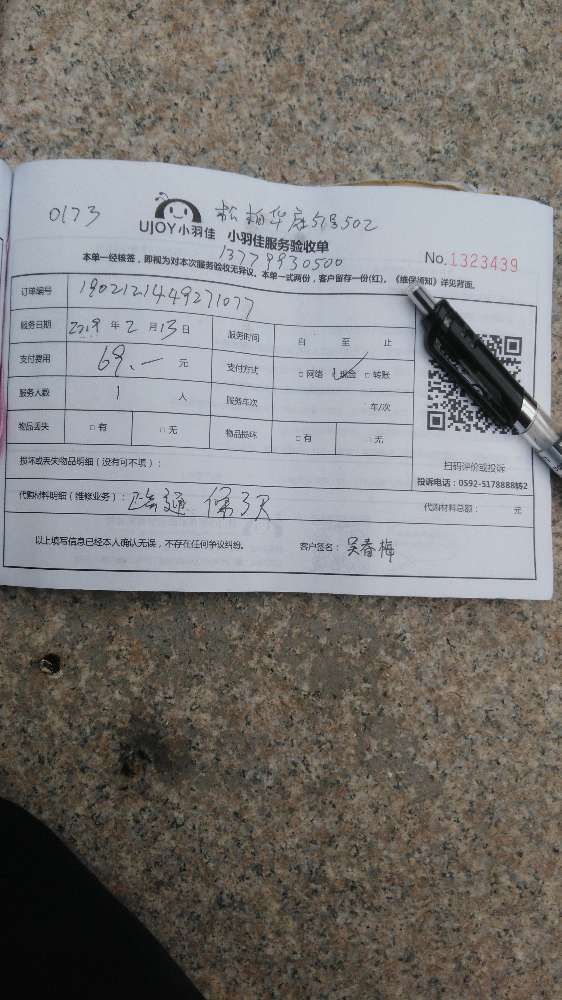 0173
松柏华庭5号502
UJOY小羽佳 小羽佳服务验收单
13779930500
No.1323439
本单一经核签，即视为对本次服务验收无异议。本单一式两份，客户留存一份(红)。《维保须知》详见背面。
订单编号 1902121449271077
服务日期 2019 年 2 月 13 日 服务时间 自 至 止
支付费用 69.— 元 支付方式 □ 网络 ☑ 现金 □ 转账
服务人数 1 人 服务车次 车/次
物品丢失 □ 有 □ 无 物品损坏 □ 有 □ 无
扫码评价或投诉
投诉电话：0592-5178888转2
损坏或丢失物品明细（没有可不填）：
代购材料明细（维修业务）： 疏通 保3天 代购材料总额： 元
以上填写信息已经本人确认无误，不存在任何争议纠纷。 客户签名：吴春梅